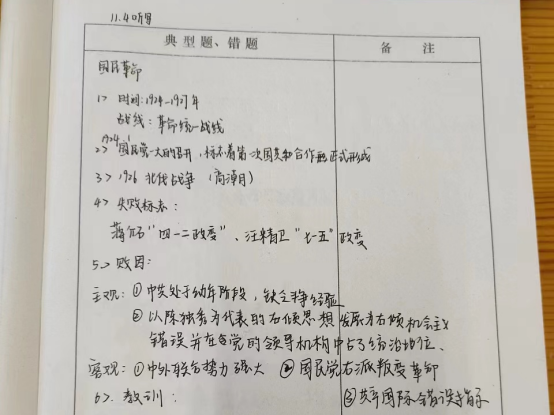 11.4听写
典型题、错题 备注
国民革命
1> 时间:1924-1927年
战线:革命统一战线
1924.1
2> 国民党一大的召开,标志着第一次国共合作正式形成
3> 1926 北伐战争 (高潮)
4> 失败标志:
蒋介石"四一二政变"、汪精卫"七一五"政变
5> 败因:
主观:①中共处于幼年阶段,缺乏斗争经验
②以陈独秀为代表的右倾思想发展为右倾机会主义
错误并在党的领导机构中占了统治地位.
客观:①中外联合势力强大 ②国民党右派叛变革命
6> 教训: ③共产国际错误指示